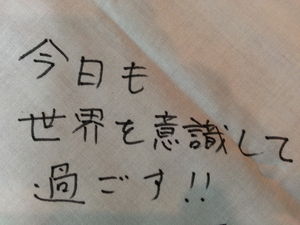 今日も
世界を意識して
過ごす!!